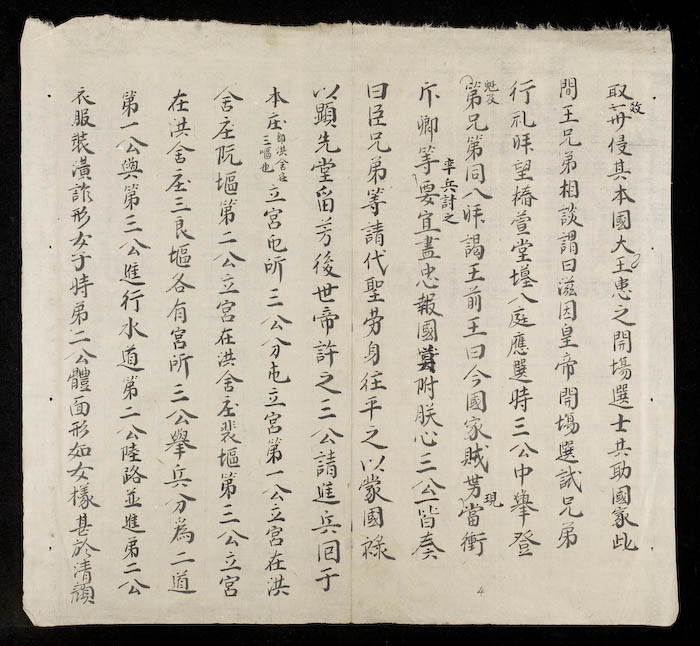 取再侵其本國大王患之開場選士共助國家此
敌
間王兄弟相談謂曰滋因皇帝開場選試兄弟
行礼拜望椿萱堂墀入庭應選時三公中舉登
第兄弟同入拜謁王前王曰今國家賊勢當衝
魁及
現
斥卿等要宜盡忠報國嘗附朕心三公皆奏
率兵討之
曰臣兄弟等請代聖勞身往平之以蒙國祿
以顕先堂留芳後世帝許之三公請進兵囘于
本庄
即洪舍庄
三塸也
立宮屯所三公分屯立宮第一公立宮在洪
舍庄阮塸第二公立宮在洪舍庄裴塸第三公立宮
在洪舍庄三良塸各有宮所三公舉兵分爲二道
第一公與第三公進行水道第二公陸路並進第二公
衣服裝潢詐形女子時第二公體面形如女樣甚於清顔
4